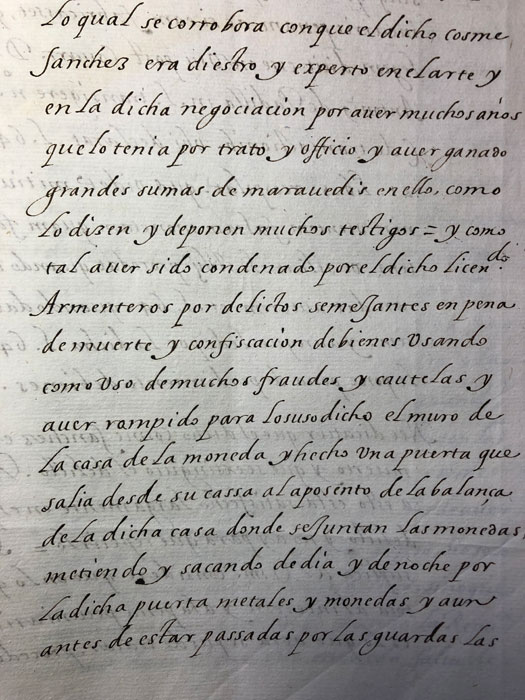 Lo qual se corrobora con que el dicho cosme
sanchez era diestro y experto en el arte y
en la dicha negociacion por auer muchos años
que lo tenia por trato y officio y auer ganado
grandes sumas de marauedis en ello, como
lo dizen y deponen muchos testigos = y como
tal auer sido condenado por el dicho licen.do
Armenteros por delictos semejantes en pena
de muerte y confiscacion de bienes Usando
como Uso de muchos fraudes y cautelas y
auer rompido para lo susodicho el muro de
la casa de la moneda y hecho Una puerta que
salia desde su cassa al aposento de la balança
de la dicha casa donde se juntan las monedas,
metiendo y sacando de dia y de noche por
la dicha puerta metales y monedas y aun
antes de estar passadas por las guardas las